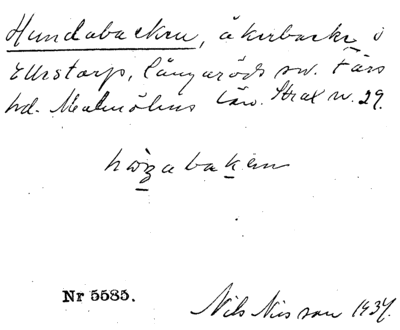 Hundabacken, åkerbacke i
Ellestorp, Långaröds sn. Färs
hd. Malmöhus län. Strax n. 29.
Nr 5585.
Nils Nilsson 1934.